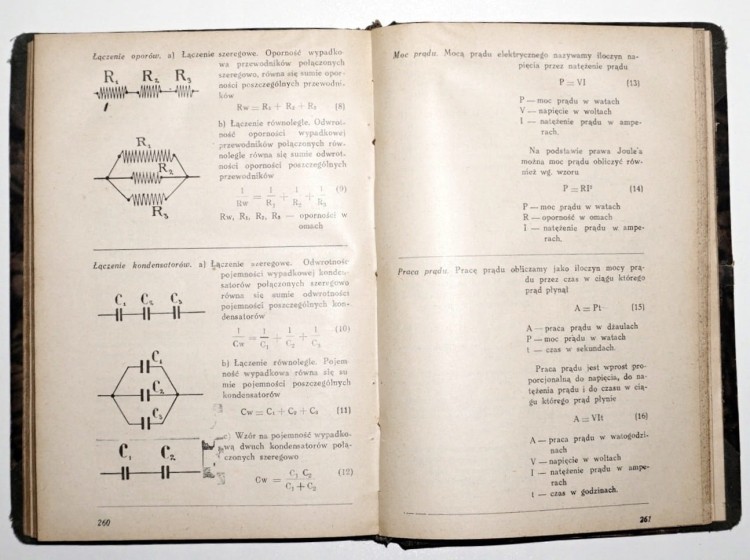 Łączenie oporów. a) Łączenie szeregowe. Oporność wypadko-
wa przewodników połączonych
szeregowo, równa się sumie opor-
ności poszczególnych przewodni-
ków
R₁ R₂ R₃
Rw = R₁ + R₂ + R₃ (8)
b) Łączenie równoległe. Odwrot-
ność oporności wypadkowej
przewodników połączonych rów-
nolegle równa się sumie odwrot-
ności oporności poszczególnych
przewodników
R₁
R₂
R₃
1/Rw = 1/R₁ + 1/R₂ + 1/R₃ (9)
Rw, R₁, R₂, R₃ — oporności w
omach
Łączenie kondensatorów. a) Łączenie szeregowe. Odwrotność
pojemności wypadkowej konden-
satorów połączonych szeregowo
równa się sumie odwrotności
pojemności poszczególnych kon-
densatorów
C₁ C₂ C₃
1/Cw = 1/C₁ + 1/C₂ + 1/C₃ (10)
b) Łączenie równoległe. Pojem
ność wypadkowa równa się su-
mie pojemności poszczególnych
kondensatorów
C₁
C₂
C₃
Cw = C₁ + C₂ + C₃ (11)
c) Wzór na pojemność wypadko-
wą dwuch kondensatorów połą-
czonych szeregowo
C₁ C₂
Cw = C₁ C₂ / C₁ + C₂ (12)
260
Moc prądu. Mocą prądu elektrycznego nazywamy iloczyn na-
pięcia przez natężenie prądu
P = VI (13)
P — moc prądu w watach
V — napięcie w woltach
I — natężenie prądu w ampe-
rach.
Na podstawie prawa Joule'a
można moc prądu obliczyć rów-
nież wg. wzoru
P = RI² (14)
P — moc prądu w watach
R — oporność w omach
I — natężenie prądu w ampe-
rach.
Praca prądu. Pracę prądu obliczamy jako iloczyn mocy prą-
du przez czas w ciągu którego
prąd płynął
A = Pt (15)
A — praca prądu w dżaulach
P — moc prądu w watach
t — czas w sekundach.
Praca prądu jest wprost pro-
porcjonalną do napięcia, do na-
tężenia prądu i do czasu w cią-
gu którego prąd płynie
A = VIt (16)
A — praca prądu w watogodzi-
nach
V — napięcie w woltach
I — natężenie prądu w ampe-
rach
t — czas w godzinach.
261